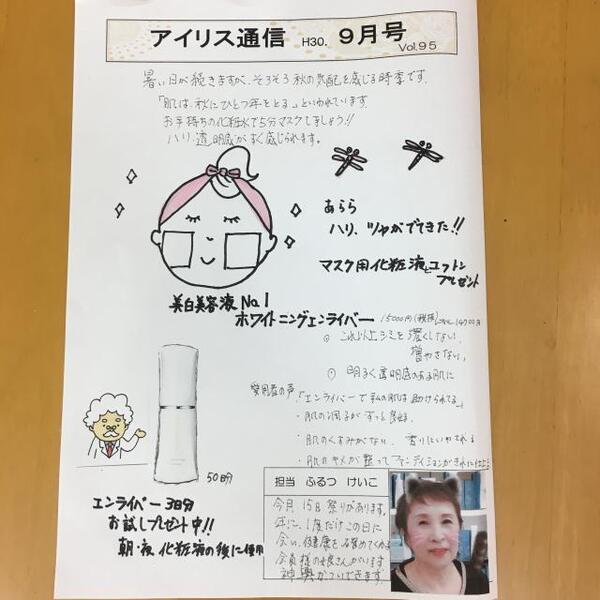 アイリス通信 H30. 9月号
Vol.95
暑い日が続きますが、そろそろ秋の気配を感じる時季です。
「肌は、秋にひとつ年をとる。」といわれています。
お手持ちの化粧水で5分マスクしましょう!!
ハリ、透明感がすぐ感じられます。
あらら
ハリ、ツヤがでてきた!!
マスク用化粧液とコットン
プレゼント
美白美容液 No.1
ホワイトニングエンライバー 15000円(税抜)
◎ これ以上シミを濃くしない、
増やさない。
◎ 明るく透明感のある肌に
愛用者の声
「エンライバーで私の肌は助けられてる」
・肌の調子がすこぶる良好
・肌のくすみがない。香りにいやされる
・肌のキメが整ってファンデイションがきれいに
50日分
エンライバー 3日分
お試しプレゼント中!!
朝・夜、化粧液の後に使用
担当 ふるつ けいこ
今月15日祭りがあります。
年に、1度だけこの日に
会い、健康を
会員様の娘さんがいます
神輿かついできます。